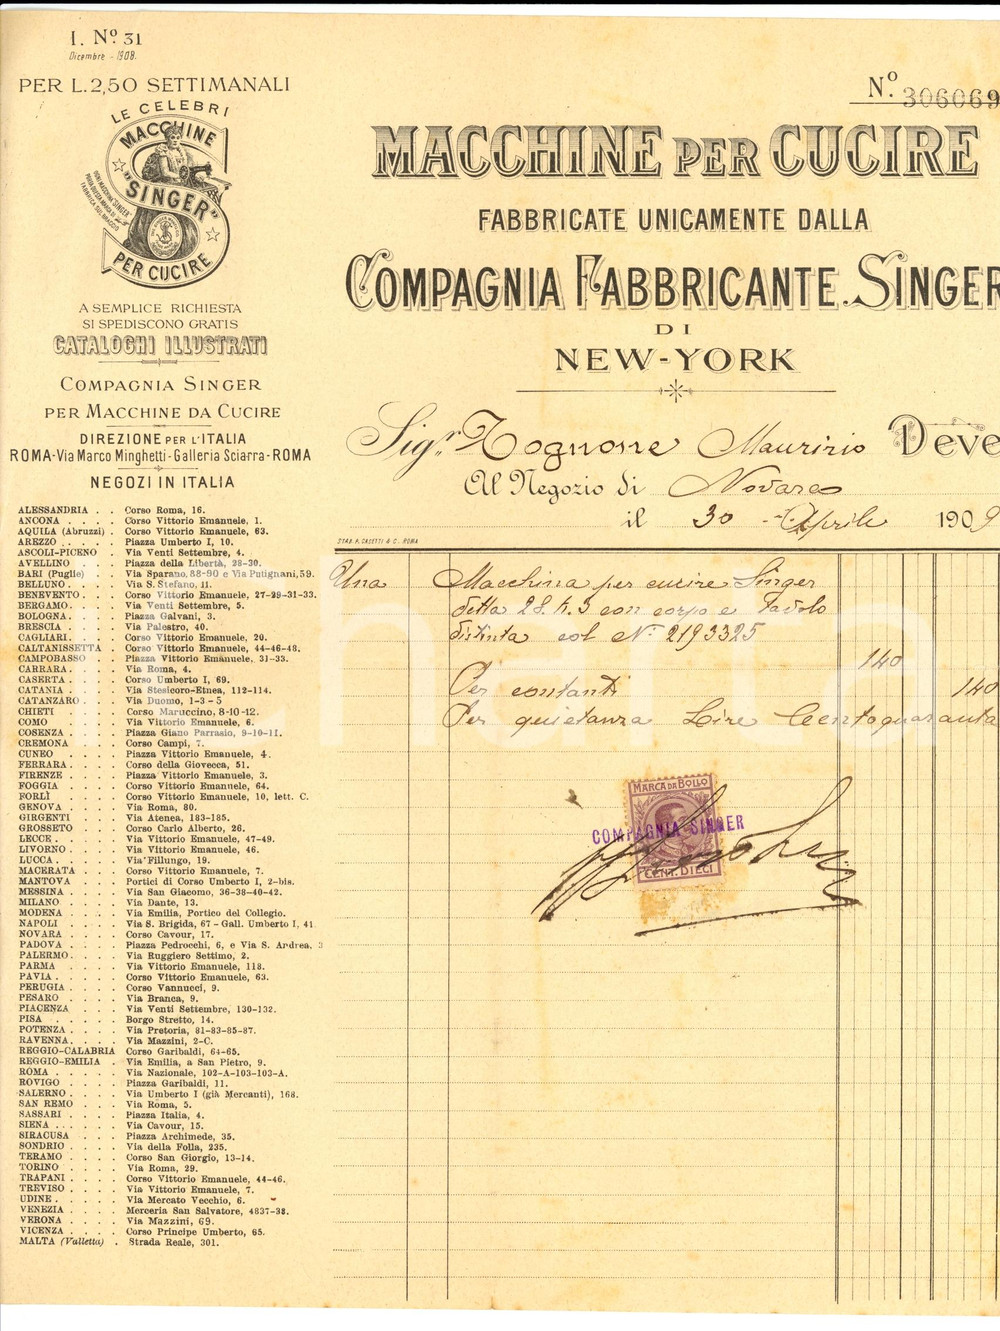 I. Nº 31
Dicembre - 1908.
PER L.2,50 SETTIMANALI
LE CELEBRI
MACCHINE
"SINGER"
PER CUCIRE
A SEMPLICE RICHIESTA
SI SPEDISCONO GRATIS
CATALOGHI ILLUSTRATI
COMPAGNIA SINGER
PER MACCHINE DA CUCIRE
DIREZIONE PER L'ITALIA
ROMA-Via Marco Minghetti-Galleria Sciarra-ROMA
NEGOZI IN ITALIA
ALESSANDRIA . . Corso Roma, 16.
ANCONA . . . . Corso Vittorio Emanuele, 1.
AQUILA (Abruzzi) . Corso Vittorio Emanuele, 63.
AREZZO . . . . Piazza Umberto I, 10.
ASCOLI-PICENO . Via Venti Settembre, 4.
AVELLINO . . . Piazza della Libertà, 28-30.
BARI (Puglie) . . Via Sparano, 88-90 e Via Putignani, 59.
BELLUNO . . . . Via S. Stefano, 11.
BENEVENTO . . . Corso Vittorio Emanuele, 27-29-31-33.
BERGAMO . . . . Via Venti Settembre, 5.
BOLOGNA . . . . Piazza Galvani, 3.
BRESCIA . . . . Via Palestro, 40.
CAGLIARI . . . . Corso Vittorio Emanuele, 20.
CALTANISSETTA . Corso Vittorio Emanuele, 44-46-48.
CAMPOBASSO . . Piazza Vittorio Emanuele, 31-33.
CARRARA . . . . Via Roma, 4.
CASERTA . . . . Corso Umberto I, 69.
CATANIA . . . . Via Stesicoro-Etnea, 112-114.
CATANZARO . . . Via Duomo, 1-3-5
CHIETI . . . . Corso Maruccino, 8-10-12.
COMO . . . . Via Vittorio Emanuele, 6.
COSENZA . . . . Piazza Giano Parrasio, 9-10-11.
CREMONA . . . . Corso Campi, 7.
CUNEO . . . . Piazza Vittorio Emanuele, 4.
FERRARA . . . . Corso della Giovecca, 51.
FIRENZE . . . . Piazza Vittorio Emanuele, 3.
FOGGIA . . . . Corso Vittorio Emanuele, 64.
FORLÌ . . . . Corso Vittorio Emanuele, 10, lett. C.
GENOVA . . . . Via Roma, 80.
GIRGENTI . . . . Via Atenea, 183-185.
GROSSETO . . . Corso Carlo Alberto, 26.
LECCE . . . . Via Vittorio Emanuele, 47-49.
LIVORNO . . . . Via Vittorio Emanuele, 46.
LUCCA . . . . Via Fillungo, 19.
MACERATA . . . Corso Vittorio Emanuele, 7.
MANTOVA . . . Portici di Corso Umberto I, 2-bis.
MESSINA . . . . Via San Giacomo, 36-38-40-42.
MILANO . . . . Via Dante, 13.
MODENA . . . . Via Emilia, Portico del Collegio.
NAPOLI . . . . Via S. Brigida, 67 - Gall. Umberto I, 41
NOVARA . . . . Corso Cavour, 17.
PADOVA . . . . Piazza Pedrocchi, 6, e Via S. Andrea, 3
PALERMO . . . . Via Ruggiero Settimo, 2.
PARMA . . . . Via Vittorio Emanuele, 118.
PAVIA . . . . Corso Vittorio Emanuele, 63.
PERUGIA . . . . Corso Vannucci, 9.
PESARO . . . . Via Branca, 9.
PIACENZA . . . Via Venti Settembre, 130-132.
PISA . . . . Borgo Stretto, 14.
POTENZA . . . . Via Pretoria, 81-83-85-87.
RAVENNA . . . . Via Mazzini, 2-C.
REGGIO-CALABRIA Corso Garibaldi, 64-65.
REGGIO-EMILIA . Via Emilia, a San Pietro, 9.
ROMA . . . . Via Nazionale, 102-A-103-103-A.
ROVIGO . . . . Piazza Garibaldi, 11.
SALERNO . . . . Via Umberto I (già Mercanti), 168.
SAN REMO . . . Via Roma, 5.
SASSARI . . . . Piazza Italia, 4.
SIENA . . . . Via Cavour, 15.
SIRACUSA . . . Piazza Archimede, 35.
SONDRIO . . . . Via della Folla, 235.
TERAMO . . . . Corso San Giorgio, 13-14.
TORINO . . . . Via Roma, 29.
TRAPANI . . . . Corso Vittorio Emanuele, 44-46.
TREVISO . . . . Via Vittorio Emanuele, 7.
UDINE . . . . Via Mercato Vecchio, 6.
VENEZIA . . . . Merceria San Salvatore, 4837-38.
VERONA . . . . Via Mazzini, 69.
VICENZA . . . . Corso Principe Umberto, 65.
MALTA (Valletta) . Strada Reale, 301.
Nº. 306069
MACCHINE PER CUCIRE
FABBRICATE UNICAMENTE DALLA
COMPAGNIA FABBRICANTE SINGER
DI
NEW-YORK
Sigr. Tognone Maurizio Deve
Al Negozio di Novara
il 30 Aprile 1909
STAB. F. CASETTI & C. ROMA
Una Macchina per cucire Singer
detta 28.K.3 con corpo e tavolo
distinta col Nº 2193325
140
Per contanti 140
Per quietanza Lire Centoquaranta
MARCA DA BOLLO
COMPAGNIA SINGER
CENT. DIECI